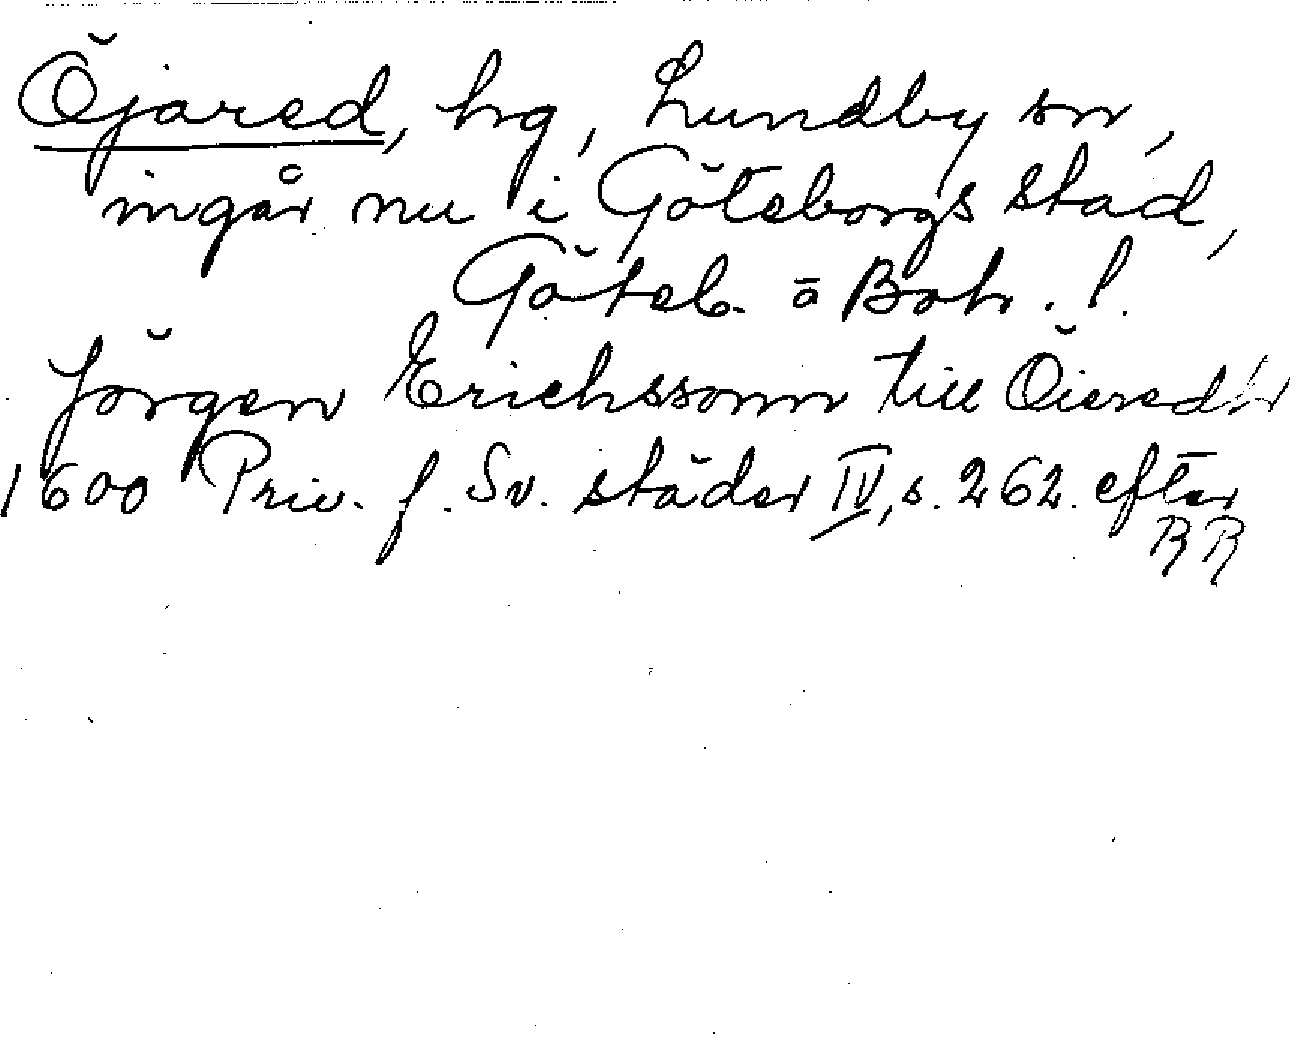 Öjared, hg, Lundby sn,
ingår nu i Göteborgs stad,
Göteb. o Boh. l.
Jörgen Erichssonn till Öiered
1600 Priv. f. Sv. städer IV, s. 262. efter
RR